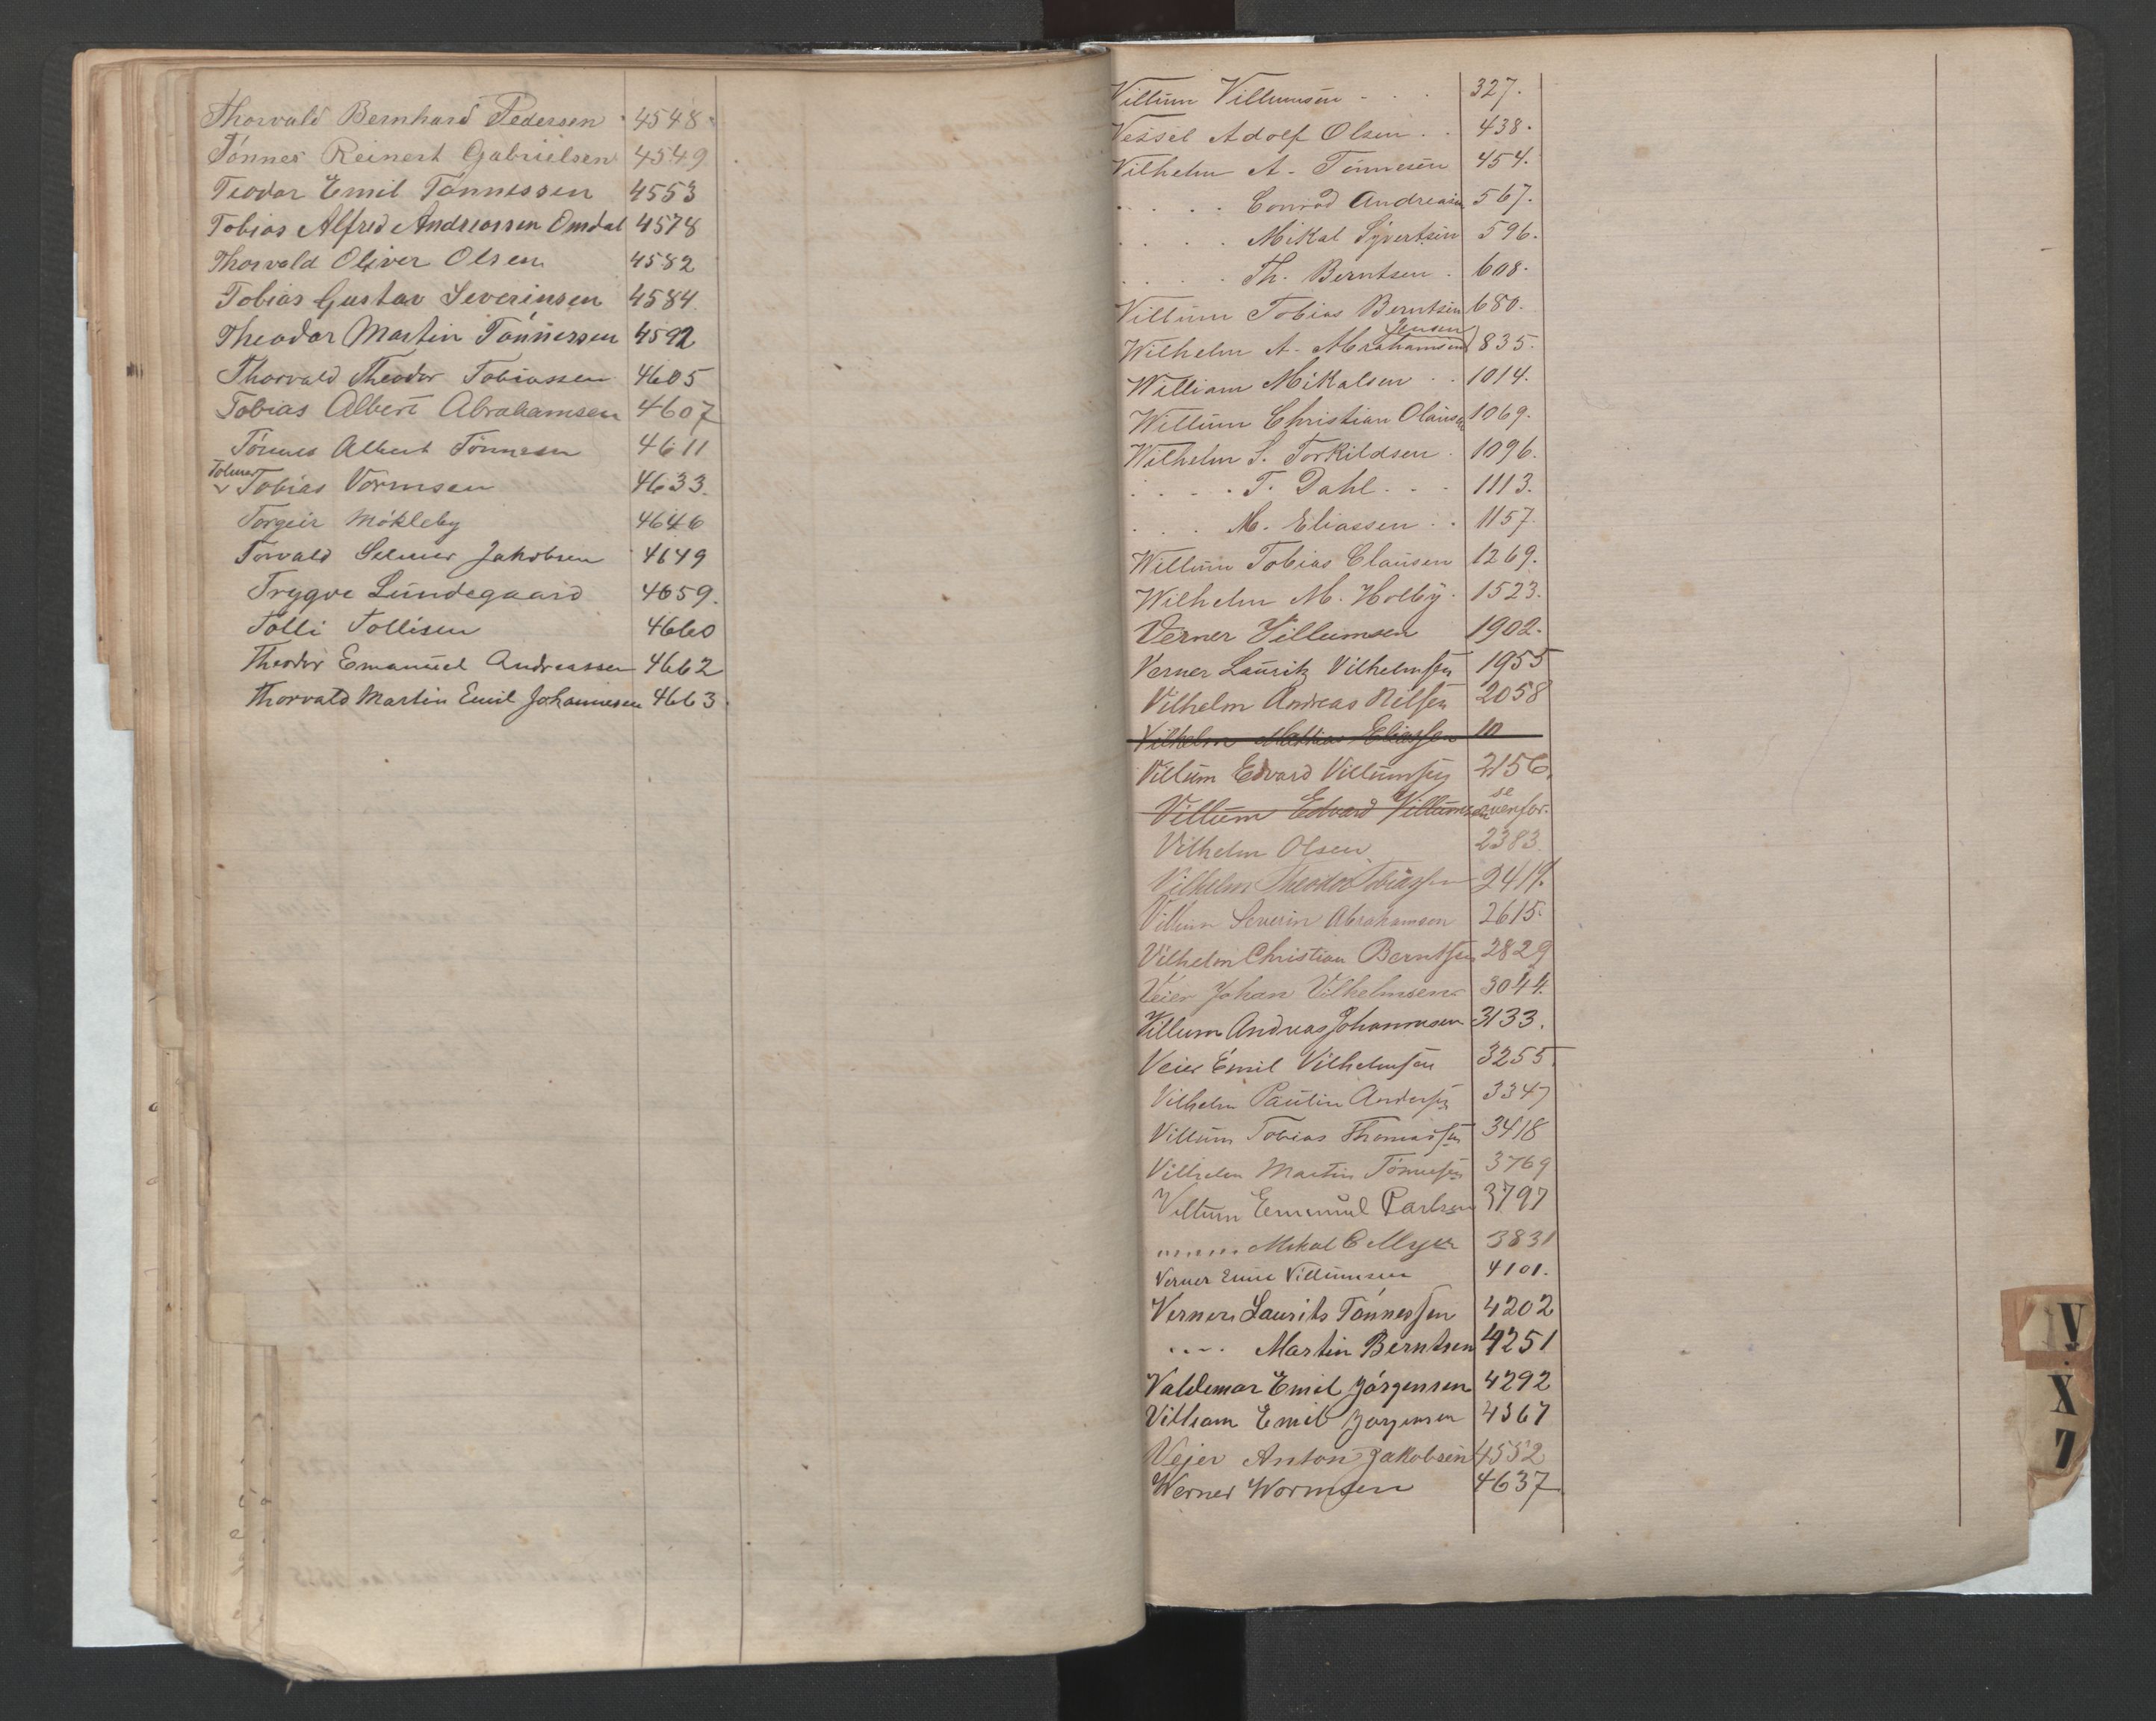 Thorvald Bernhard Pedersen 4548
Tónnes Reinert Gabrielsen 4549
Teodor Emil Tonnessen 4553
Tobias Alfred Andreassen Omdal 4578
Thorvald Oliver Olsen 4582
Tobias Gustav Severinsen 4584
Theodor Martin Tónnessen 4592
Thorvald Theodor Tobiassen 4605
Tobias Albert Abrahamsen 4607
Tónnes Albert Tönnesen 4611
Tobias Vormsen 4633.
Torgeir Mókleby 4646
Torvald Selmer Jakobsen 4649
Trygve Lundegaard 4659.
Tolli Tollisen 4660
Theodor Emanuel Andreassen 4662
Thorvald Martin Emil Johannesen 4663
Villum Villumsen - . . 327.
Vessel Adolf Olsen . . 438.
Vilhelm A - Tönnesen 454.
. . . . Conrad Andreasen 567.
. . . . Mikal Syvertsen 596.
. . . . Th. Berntsen . 608.
Villum Tobias Berntsen 680.
Jensen
Wilhelm A - Abrahamsen 835.
William Mikalsen . . 1014.
Willum Christian Olausen 1069.
Wilhelm S. Torkildsen . 1096.
. . . . T. Dahl . . - 1113.
. . . M. Eliassen . . 1157.
Willum Tobias Clausen 1269.
Wilhelm M. Holby . 1523.
Verner Villumsen 1902.
Verner Lauritz Vilhelmsen 1955
Vilhelm Andreas Nilsen 2058
Vilhelm Mathias Eliassen 10
Villum Edvard Villumsen 2156.
Villum Edvard Villumsen se ovenfor.
Vilhelm Olsen 2383
Vilhelm Theodor Tobiassen 2419.
Villum Severin Abrahamsen 2615.
Vilhelm Christian Berntsen 2829
Veier Johan Vilhelmsen 3044.
Villum Andreas Johannesen 3133.
Veier Emil Vilhelmsen 3255.
Vilhelm Paulin Andersen 3347
Villum Tobias Thomassen 3418
Vilhelm Martin Tónnesen 3769
Villum Emanuel Karlsen 3797
" " " " Mikal 3831
Verner Emil Villumsen 4101.
Verner Laurits Tónnessen 4202
. . - . Martin Berntsen 4251
Valdemar Emil Jórgensen 4292
Villiam Emil Jorgensen 4367
Vejer Anton Jakobsen 4552
Werner Wormsen 4637
V
X
Z